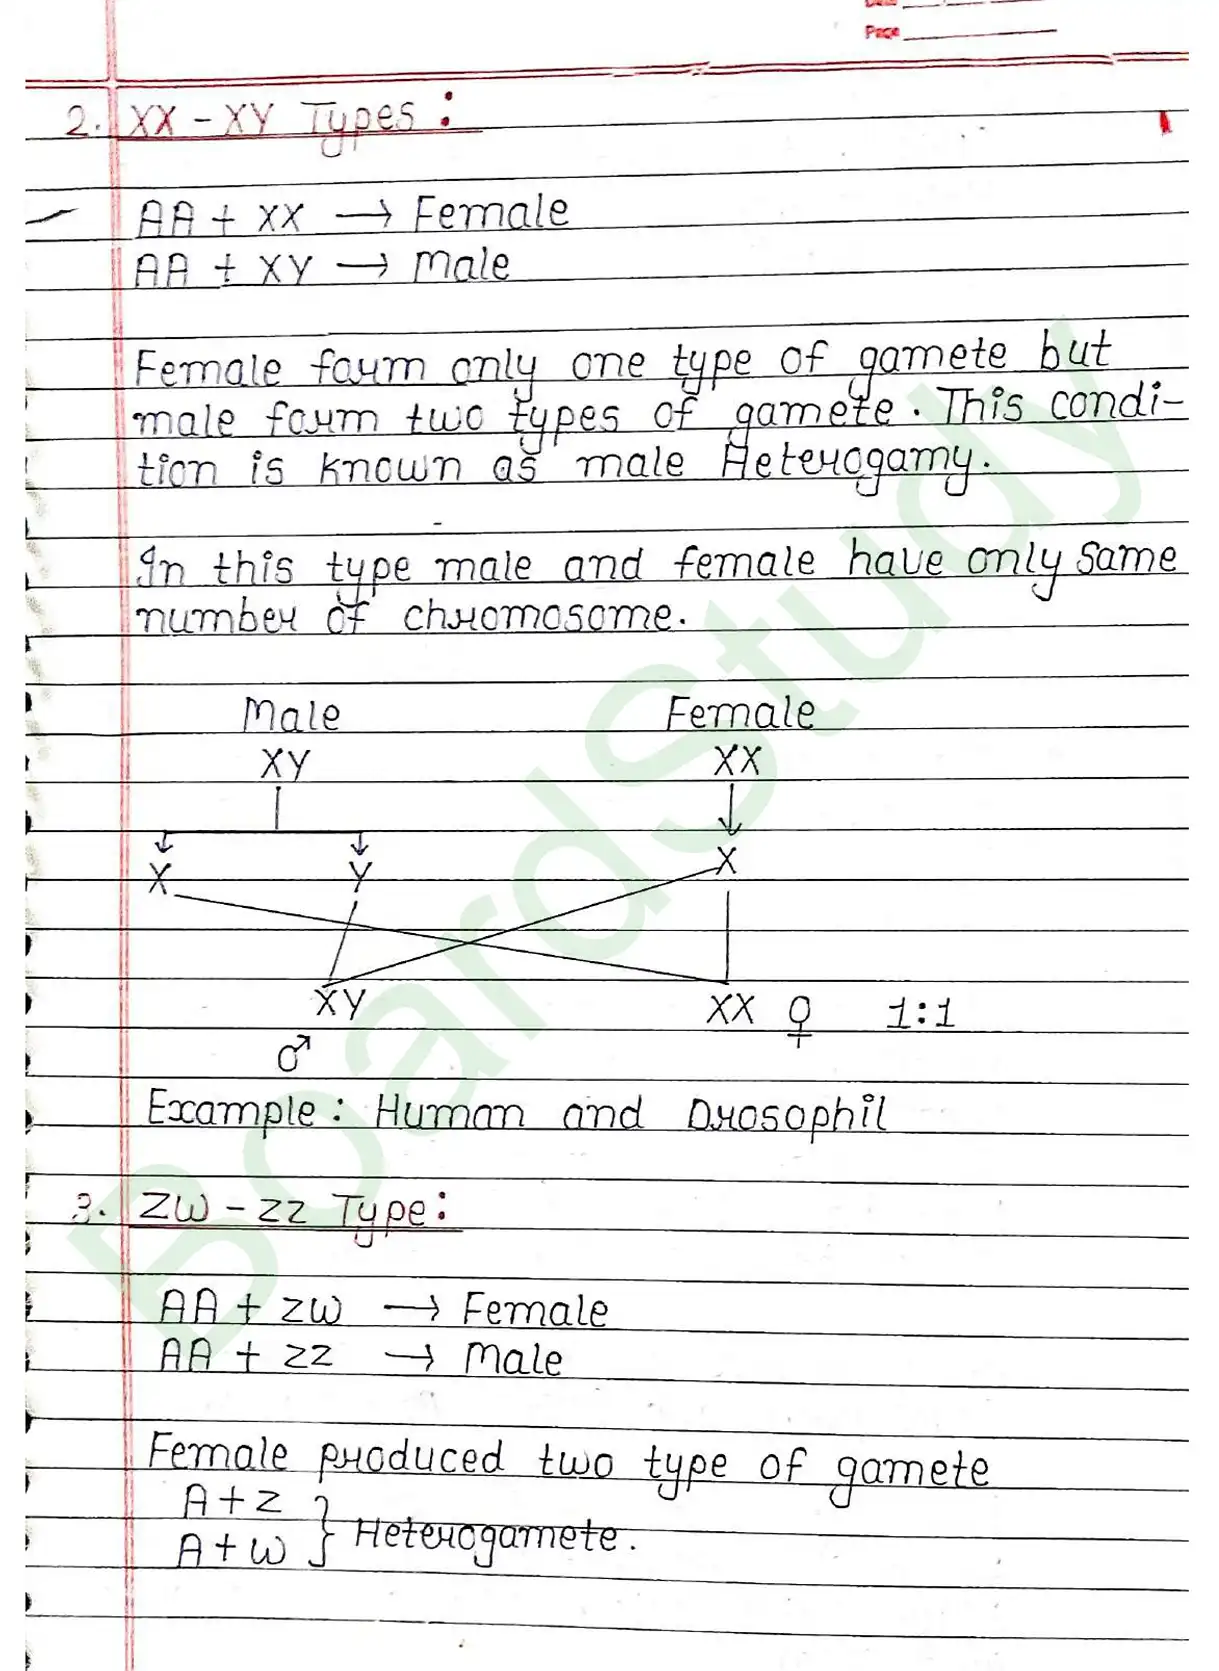 Date
Page
2. XX - XY Types :
AA + XX → Female
AA + XY → Male
Female form only one type of gamete but
male form two types of gamete. This condi-
tion is known as male Heterogamy.
In this type male and female have only same
number of chromosome.
Male Female
XY XX
X Y X
XY XX ♀ 1:1
♂
Example : Human and Drosophil
3. ZW - ZZ Type :
AA + ZW → Female
AA + ZZ → Male
Female produced two type of gamete
A + Z
A + W } Heterogamete.
BoardStudy